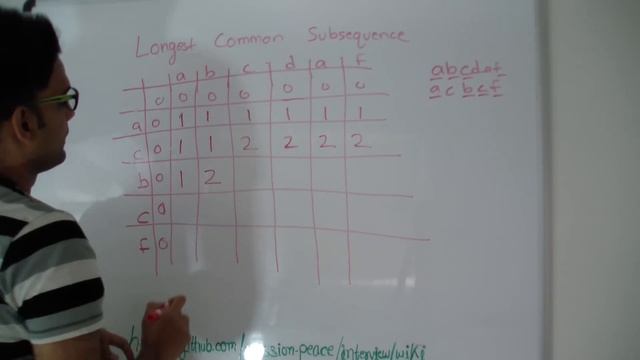 Longest Common Subsequence
a b c d a f
0 0 0 0 0 0 0
a 0 1 1 1 1 1 1
c 0 1 1 2 2 2 2
b 0 1 2
c 0
f 0
abcdaf
acbcf
/interview/wiki